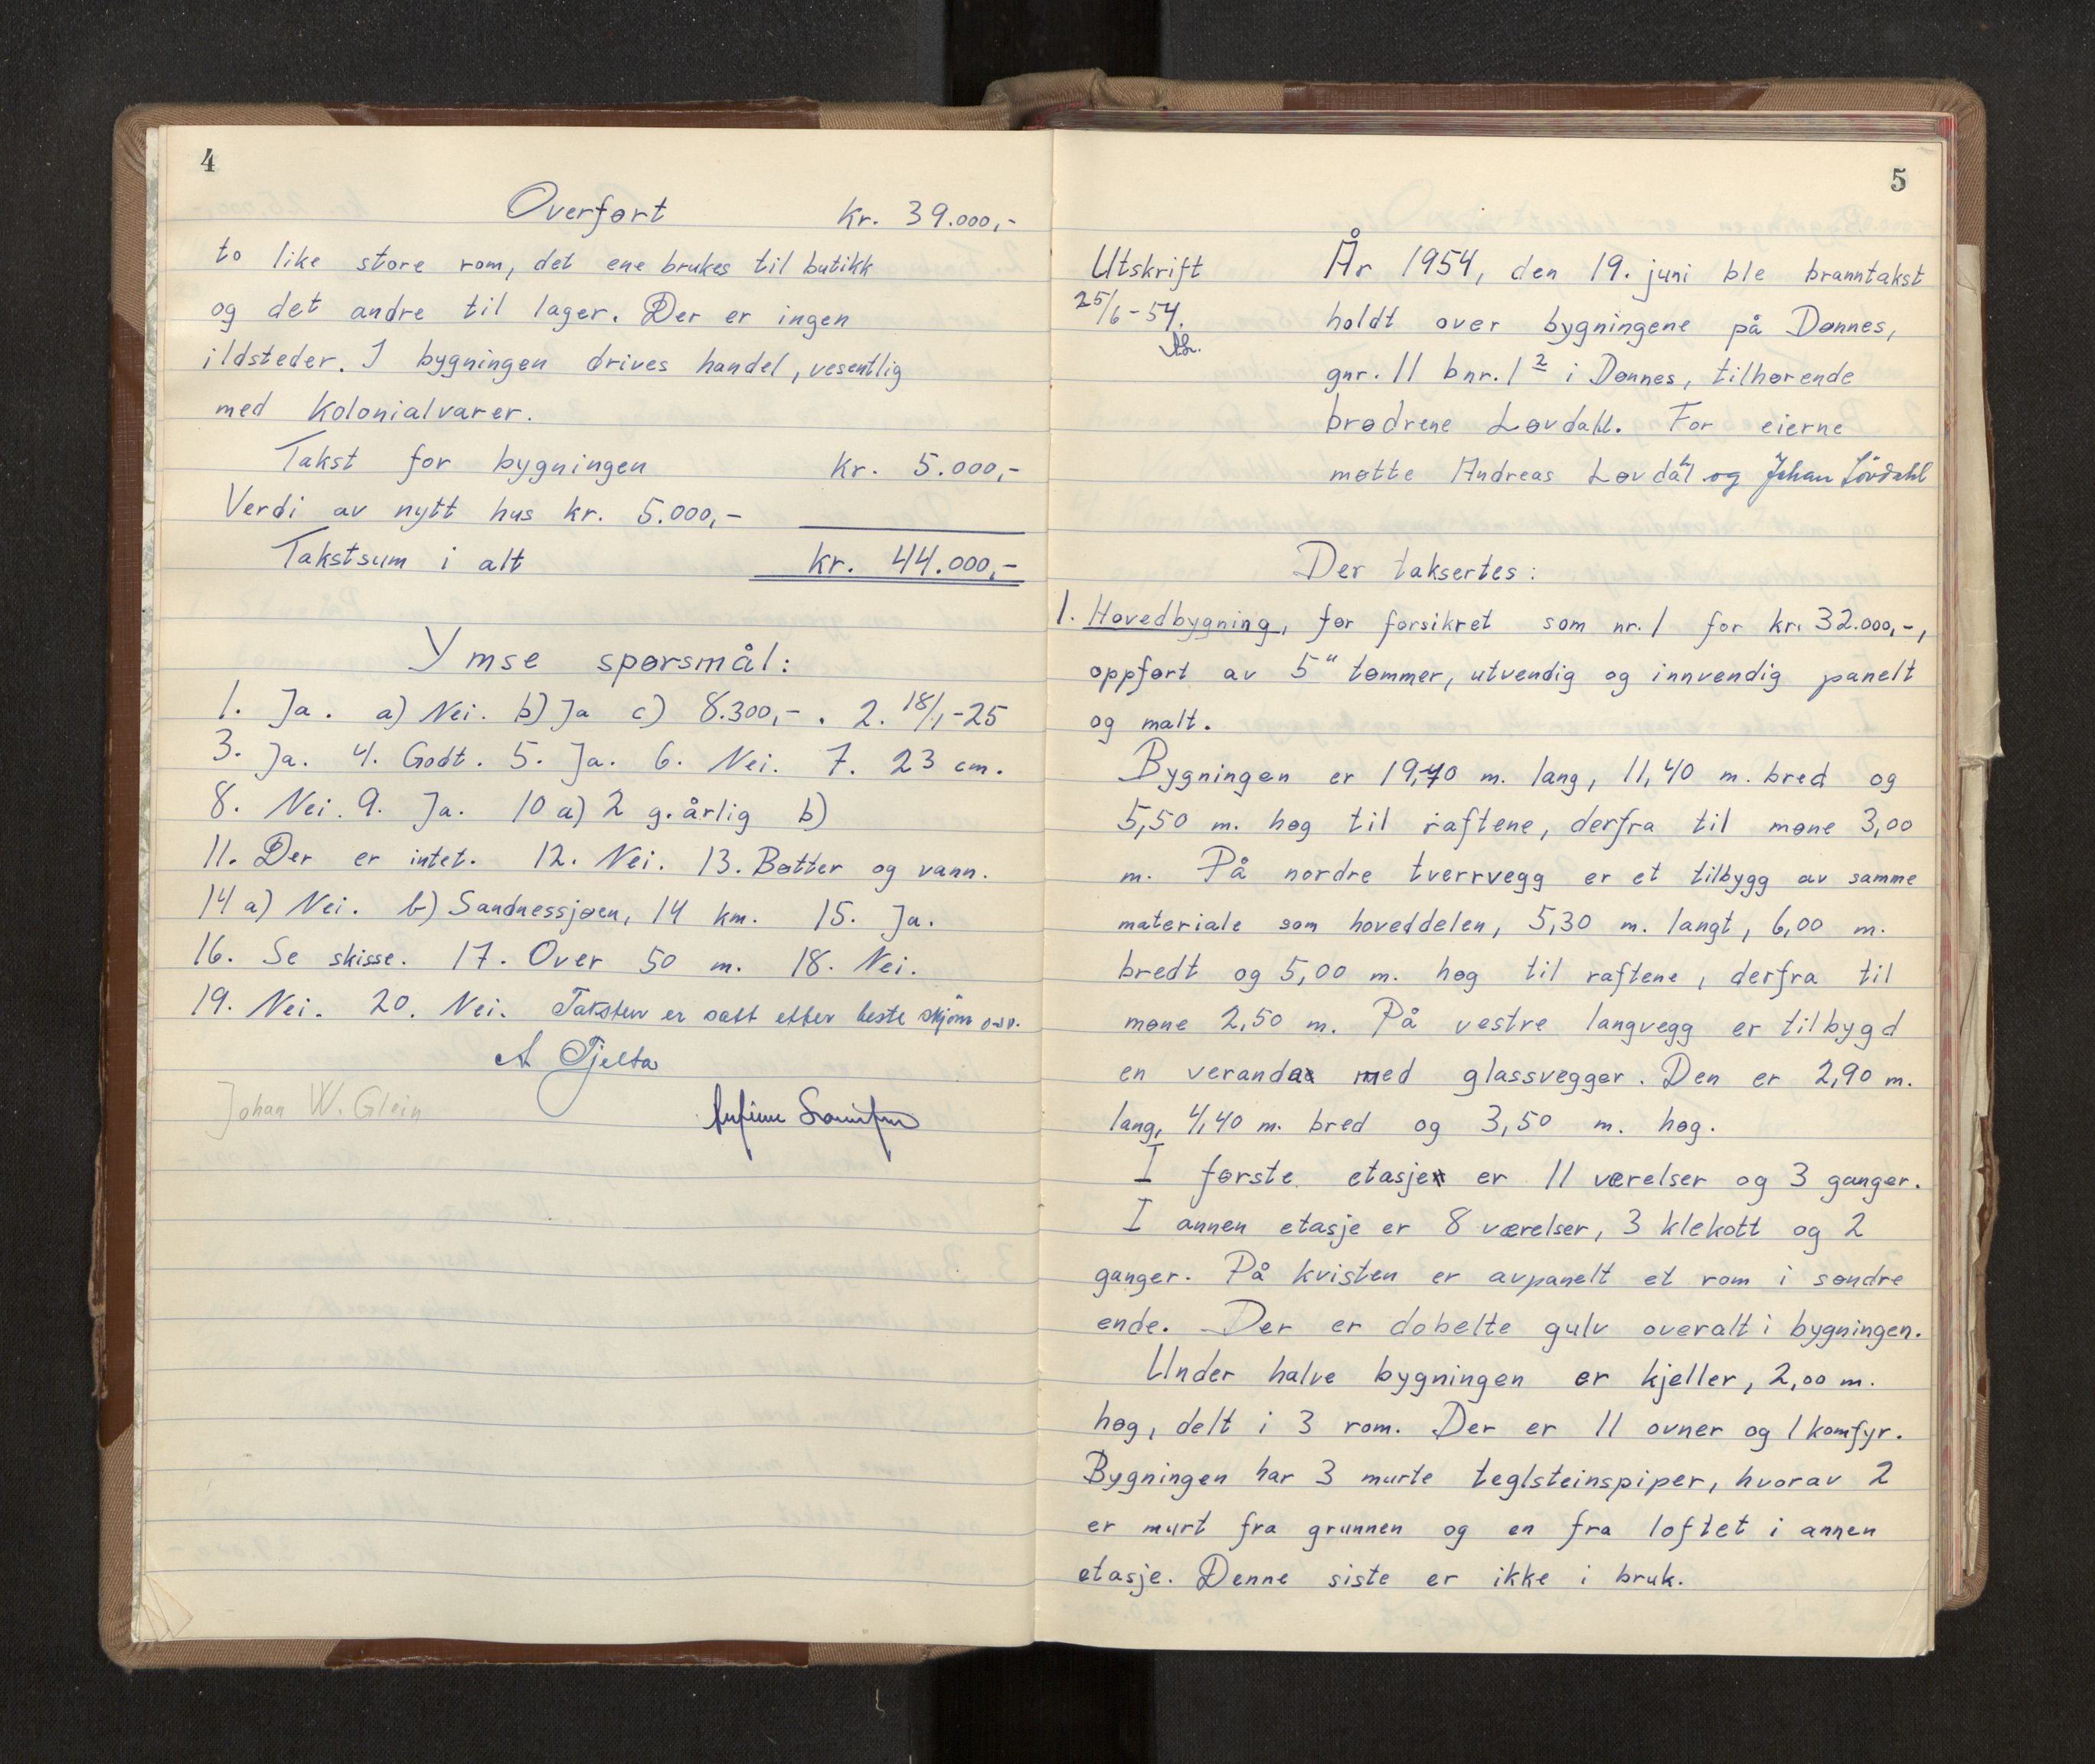 4
Overført kr. 39.000,-
to like store rom, det ene brukes til butikk
og det andre til lager. Der er ingen
ildsteder. I bygningen drives handel, vesentlig
med kolonialvarer.
Takst for bygningen kr. 5.000,-
Verdi av nytt hus kr. 5.000,-
Takstsum i alt kr. 44.000,-
Ymse spørsmål:
1. Ja. a) Nei. b) Ja c) 8.300,-. 2. 18/1-25
3. Ja. 4. Godt. 5. Ja. 6. Nei. 7. 23 cm.
8. Nei. 9. Ja. 10 a) 2 g. årlig b)
11. Der er intet. 12. Nei. 13. Bøtter og vann.
14 a) Nei. b) Sandnessjøen, 14 km. 15. Ja.
16. Se skisse. 17. Over 50 m. 18. Nei.
19. Nei. 20. Nei. Taksten er satt etter beste skjønn osv.
A Tjelta
Johan W. Glein
5
Utskrift
25/6-54.
År 1954, den 19. juni ble branntakst
holdt over bygningene på Dønnes,
gnr. 11 bnr. 1 2 i Dønnes, tilhørende
brødrene Løvdahl. For eierne
møtte Andreas Løvdahl og Johan Lövdahl
Der taksertes:
1. Hovedbygning, før forsikret som nr. 1 for kr. 32.000,-,
oppført av 5" tømmer, utvendig og innvendig panelt
og malt.
Bygningen er 19,40 m. lang, 11,40 m. bred og
5,50 m. høg til raftene, derfra til møne 3,00
m. På nordre tverrvegg er et tilbygg av samme
materiale som hoveddelen, 5,30 m. langt, 6,00 m.
bredt og 5,00 m. høg til raftene, derfra til
møne 2,50 m. På vestre langvegg er tilbygd
en veranda med glassvegger. Den er 2,90 m.
lang, 4,40 m. bred og 3,50 m. høg.
I første etasje er 11 værelser og 3 ganger.
I annen etasje er 8 værelser, 3 klekott og 2
ganger. På kvisten er avpanelt et rom i søndre
ende. Der er dobelte gulv overalt i bygningen.
Under halve bygningen er kjeller, 2,00 m.
høg, delt i 3 rom. Der er 11 ovner og 1 komfyr.
Bygningen har 3 murte teglsteinspiper, hvorav 2
er murt fra grunnen og en fra loftet i annen
etasje. Denne siste er ikke i bruk.